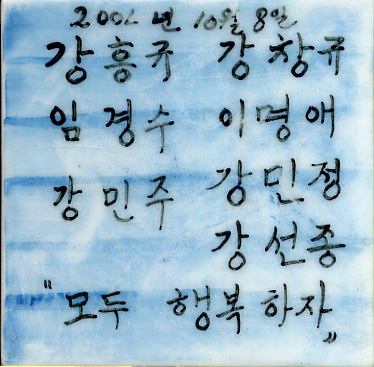 10월 8일
강흥규 강창규
임경수 이명애
강민주 강민정
강선종
"모두 행복하자"